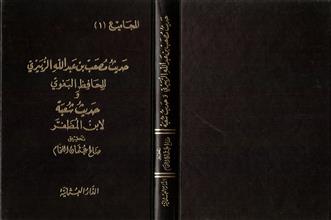 المجاميع (١)
حديث مصعب بن عبد الله الزبيري
للحافظ البغوي
و
حديث شعبة
لابن المظفر
صالح عثمان اللحام
الدار العثمانية
حديث مصعب بن عبد الله الزبيري و حديث شعبة
الدار العثمانية